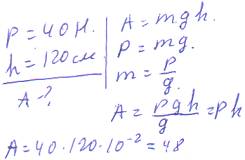 P = 40 Н.
h = 120 см
A - ?
A = mgh.
P = mg.
m = P/g.
A = Pgh/g = Ph
A = 40 · 120 · 10⁻² = 48